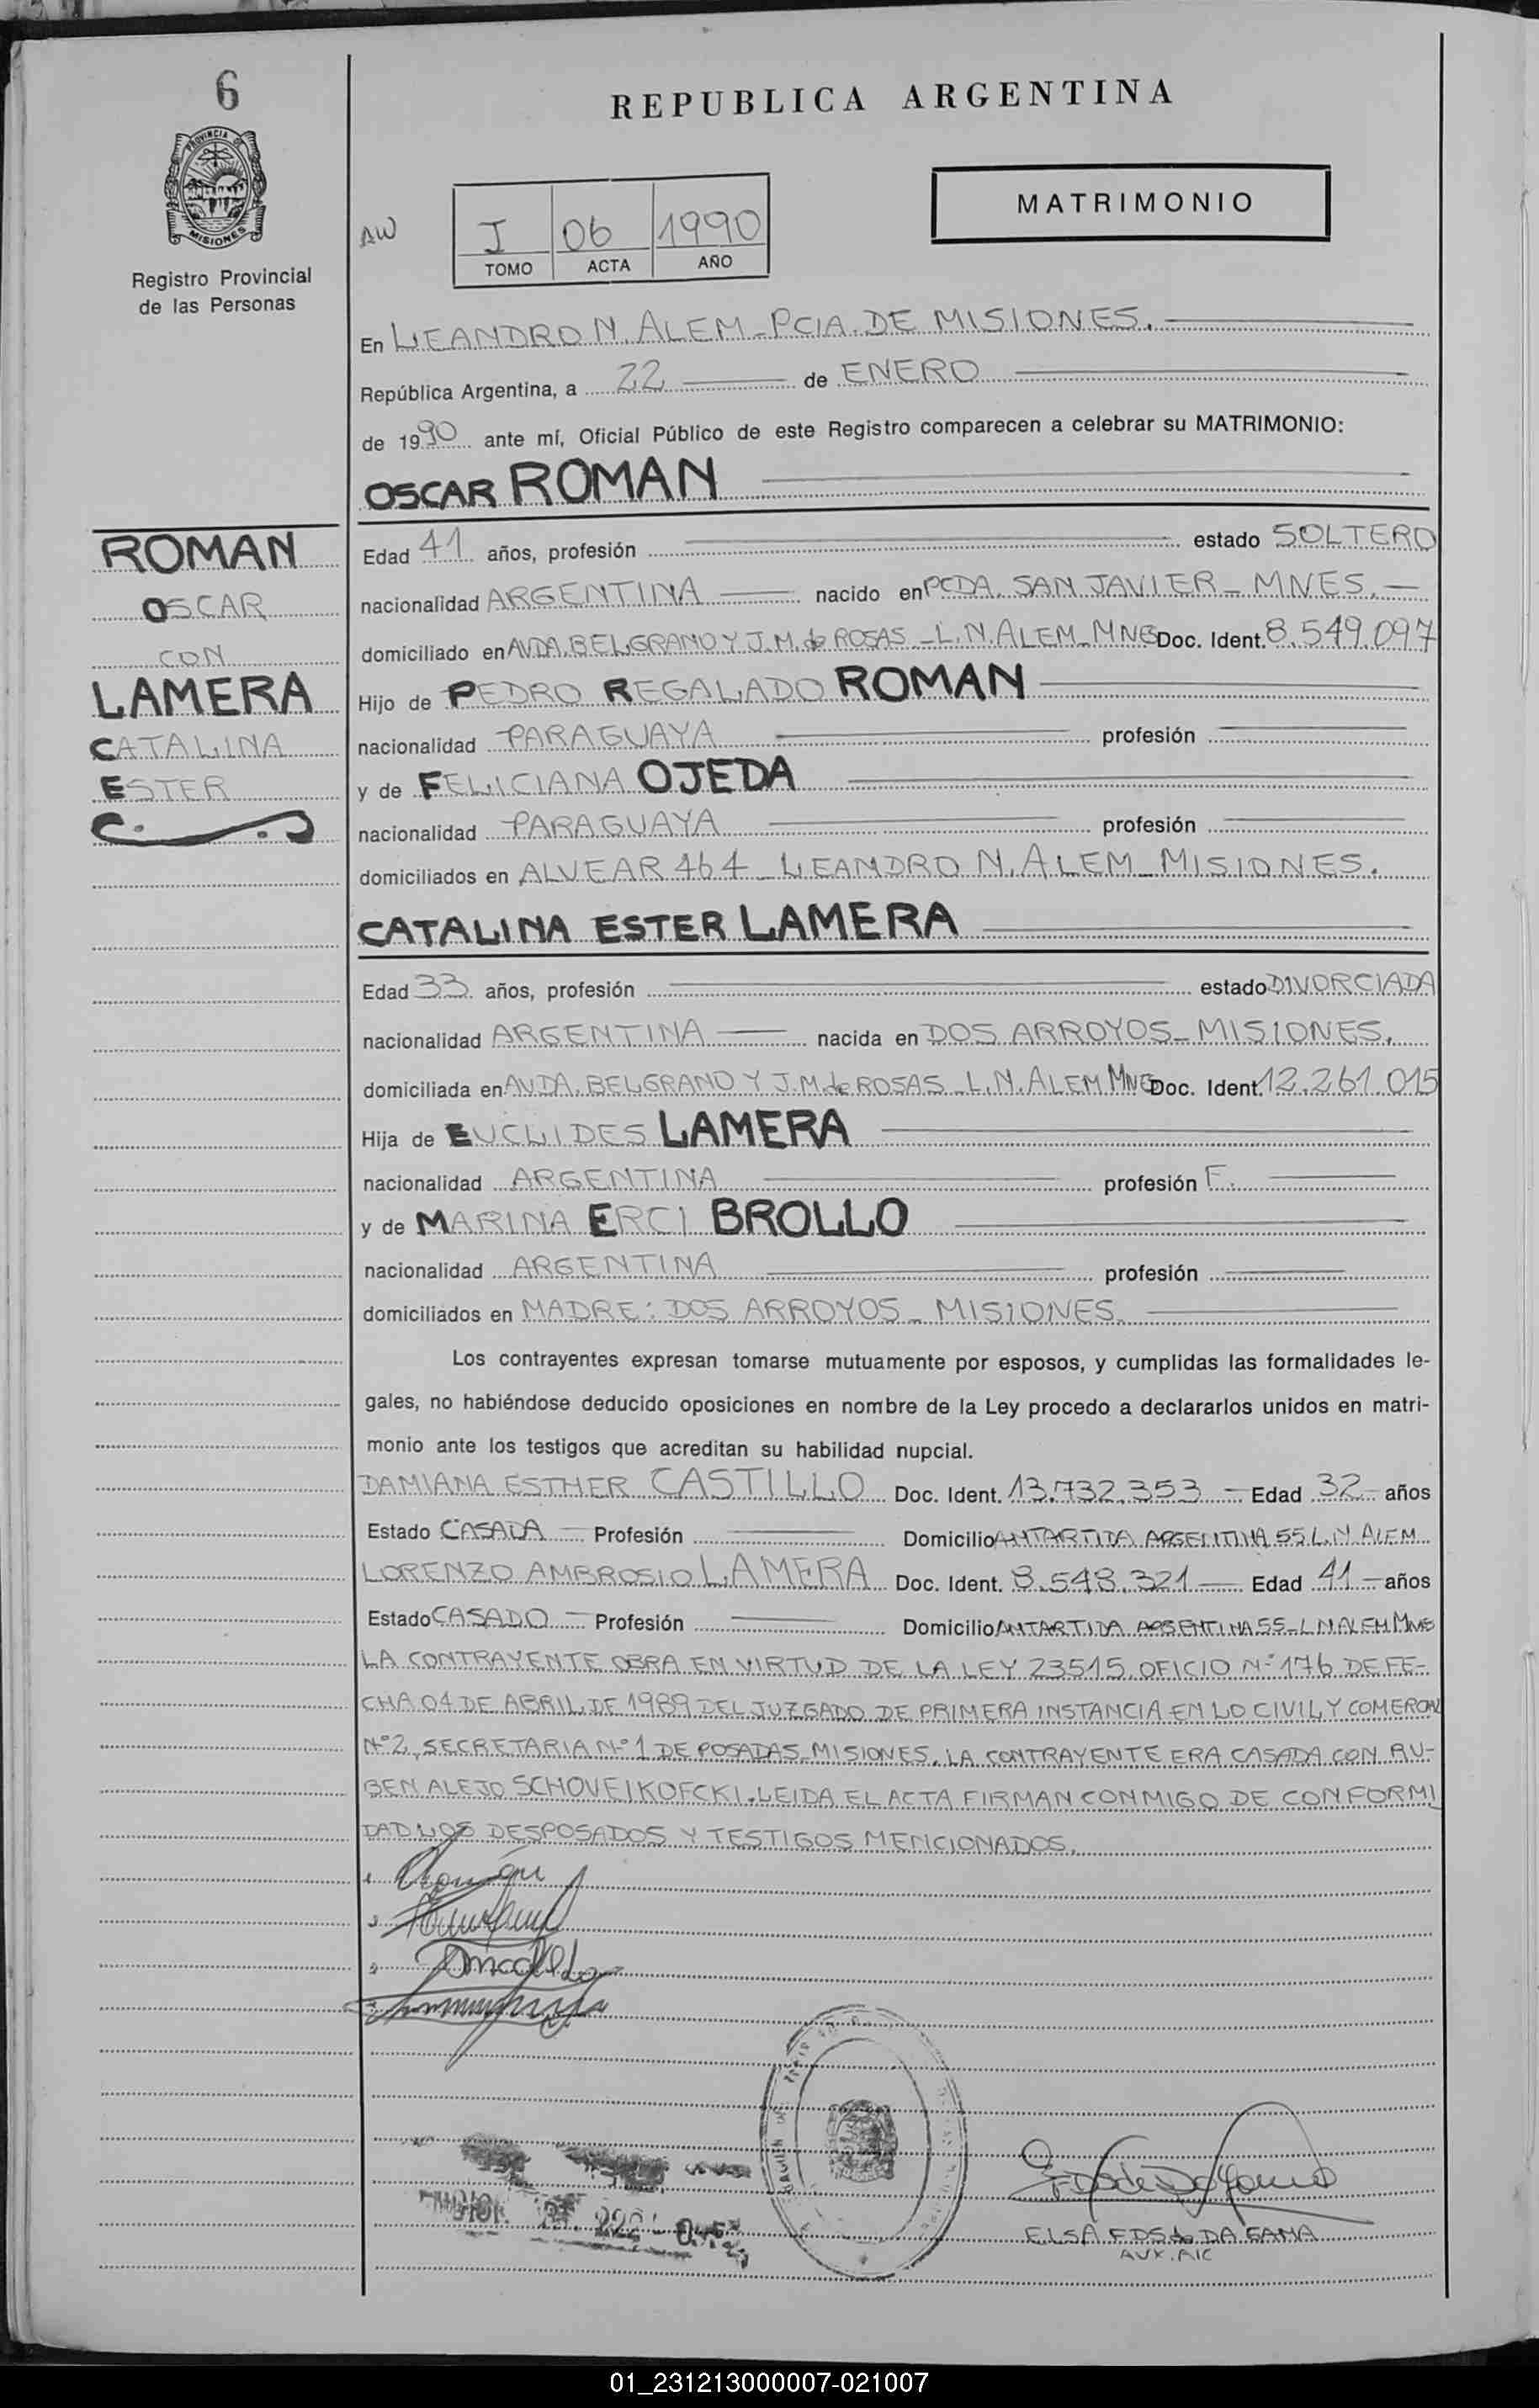 6
REPUBLICA ARGENTINA
PROVINCIA DE
MISIONES
Registro Provincial
de las Personas
AW
I 06 1990
TOMO ACTA AÑO
MATRIMONIO
En LEANDRO N. ALEM - PCIA. DE MISIONES.
República Argentina, a 22 de ENERO
de 1990 ante mí, Oficial Público de este Registro comparecen a celebrar su MATRIMONIO:
OSCAR ROMAN
ROMAN
OSCAR
CON
LAMERA
CATALINA
ESTER
Edad 41 años, profesión estado SOLTERO
nacionalidad ARGENTINA nacido en PCDA. SAN JAVIER - MNES.
domiciliado en AVDA. BELGRANO Y J.M. de ROSAS - L.N. ALEM - MNES Doc. Ident. 8.549.097
Hijo de PEDRO REGALADO ROMAN
nacionalidad PARAGUAYA profesión
y de FELICIANA OJEDA
nacionalidad PARAGUAYA profesión
domiciliados en ALVEAR 464 - LEANDRO N. ALEM - MISIONES.
CATALINA ESTER LAMERA
Edad 33 años, profesión estado DIVORCIADA
nacionalidad ARGENTINA nacida en DOS ARROYOS - MISIONES.
domiciliada en AVDA. BELGRANO Y J.M. de ROSAS - L.N. ALEM MNES Doc. Ident. 12.261.015
Hija de EUCLIDES LAMERA
nacionalidad ARGENTINA profesión F.
y de MARINA ERCI BROLLO
nacionalidad ARGENTINA profesión
domiciliados en MADRE: DOS ARROYOS - MISIONES.
Los contrayentes expresan tomarse mutuamente por esposos, y cumplidas las formalidades le-
gales, no habiéndose deducido oposiciones en nombre de la Ley procedo a declararlos unidos en matri-
monio ante los testigos que acreditan su habilidad nupcial.
DAMIANA ESTHER CASTILLO Doc. Ident. 13.732.353 - Edad 32 - años
Estado CASADA - Profesión Domicilio ANTARTIDA ARGENTINA 55 L.N. ALEM
LORENZO AMBROSIO LAMERA Doc. Ident. 8.548.321 - Edad 41 - años
Estado CASADO - Profesión Domicilio ANTARTIDA ARGENTINA 55 - L N ALEM MNES
LA CONTRAYENTE OBRA EN VIRTUD DE LA LEY 23515. OFICIO Nº 176 DE FE-
CHA 04 DE ABRIL DE 1989 DEL JUZGADO DE PRIMERA INSTANCIA EN LO CIVIL Y COMERCIAL
Nº 2, SECRETARIA Nº 1 DE POSADAS - MISIONES. LA CONTRAYENTE ERA CASADA CON RU-
BEN ALEJO SCHOVEIKOFCKI. LEIDA EL ACTA FIRMAN CONMIGO DE CONFORMI
DAD LOS DESPOSADOS Y TESTIGOS MENCIONADOS.
ELSA F.DS. de DA GAMA
AUX. RIC
01_231213000007-021007